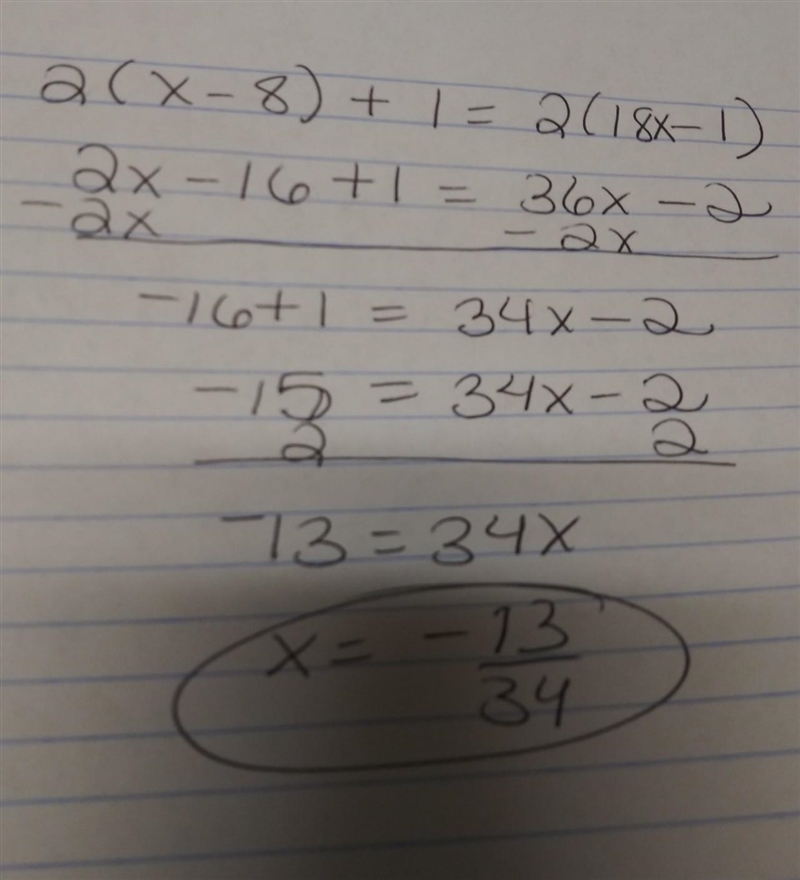 2(x-8)+1=2(18x-1)
2x-16+1=36x-2
-2x -2x
-16+1=34x-2
-15=34x-2
2 2
-13=34x
x=-13/34